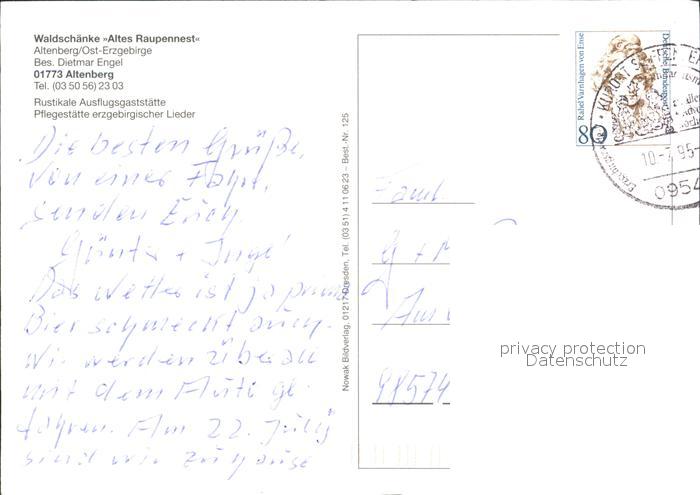 Waldschänke »Altes Raupennest«
Altenberg/Ost-Erzgebirge
Bes. Dietmar Engel
01773 Altenberg
Tel. (03 50 56) 23 03
Rustikale Ausflugsgaststätte
Pflegestätte erzgebirgischer Lieder
Die besten Grüße,
von einer Fahrt,
senden Euch
Günter + Inge
Das Wetter ist ja prima
Bier schmeckt auch.
Wir werden überall
mit dem Auto ge-
fahren. Am 22. Julij
sind wir zuhause
Nowak Bildverlag, 01217 Dresden, Tel. (03 51) 4 11 06 23 – Best.-Nr. 125
Rahel Varnhagen von Ense
Deutsche Bundespost
80
KURORT
10-7.95-
0954
Faml
G + M
98574
privacy protection
Datenschutz